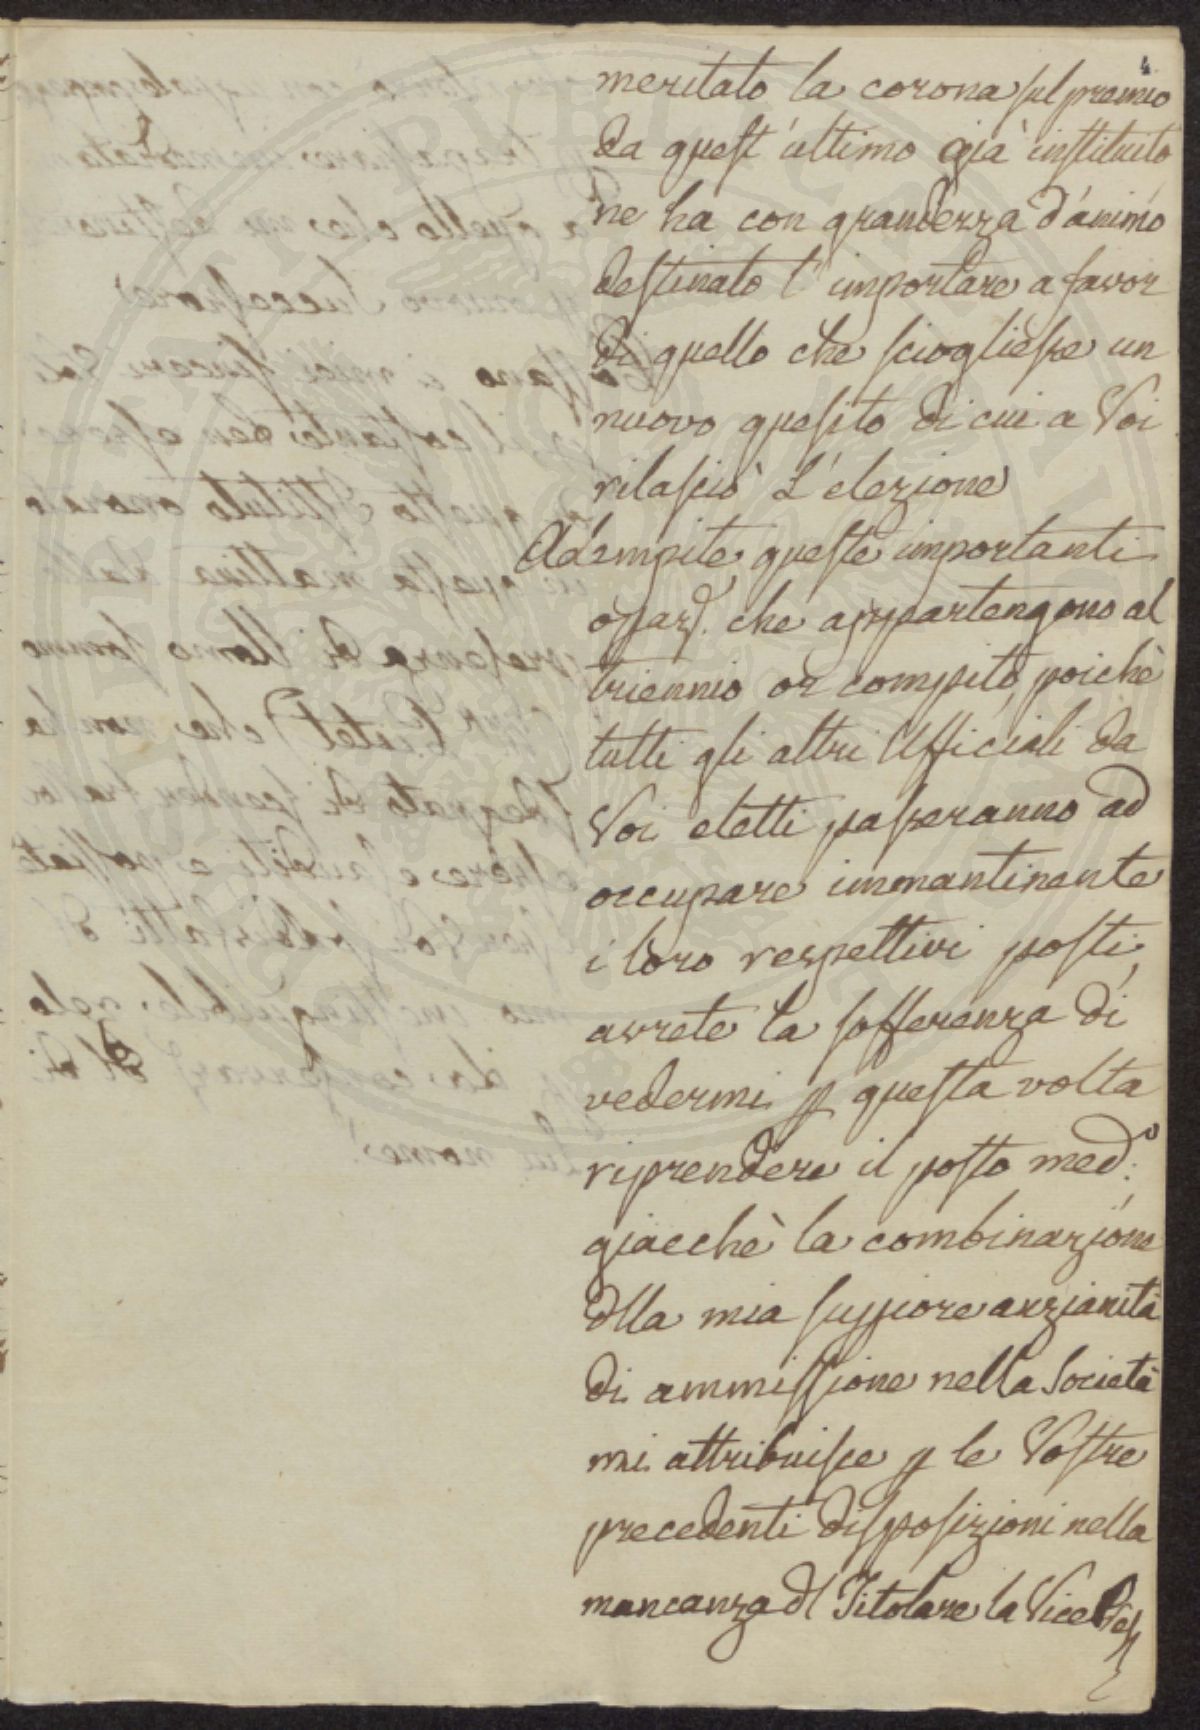 4
meritato la corona sul premio
da quest'ultimo già instituito
ne ha con grandezza d'animo
destinato l'importare a favor
di quello che sciogliesse un
nuovo quesito di cui a Voi
rilasciò L'elezione
Adempite queste importanti
opaz. che appartengono al
triennio or compito, poichè
tutti gli altri Ufficiali da
Voi eletti passeranno ad
occupare immantinente
i loro respettivi posti,
avrete la sofferenza di
vedermi p questa volta
riprendere il posto med.o
giacchè la combinazione
dlla mia suppiore anzianità
di ammissione nella Società
mi attribuisce p le Vostre
precedenti disposizioni nella
mancanza dl Titolare la Vice